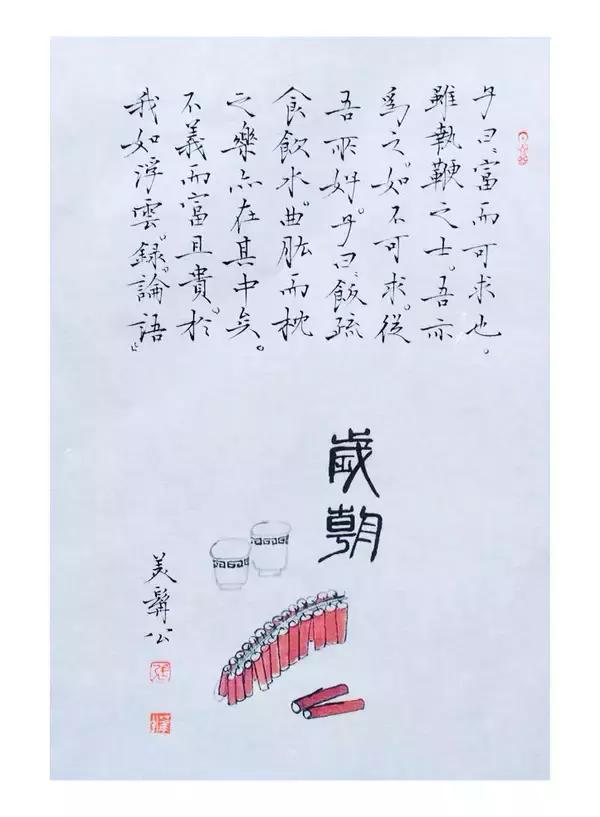 子曰、富而可求也。
雖執鞭之士。吾亦
爲之。如不可求。從
吾所好。子曰、飯疏
食飲水。曲肱而枕
之樂亦在其中矣。
不義而富且貴。於
我如浮雲。錄論語。
歲朝
美髯公